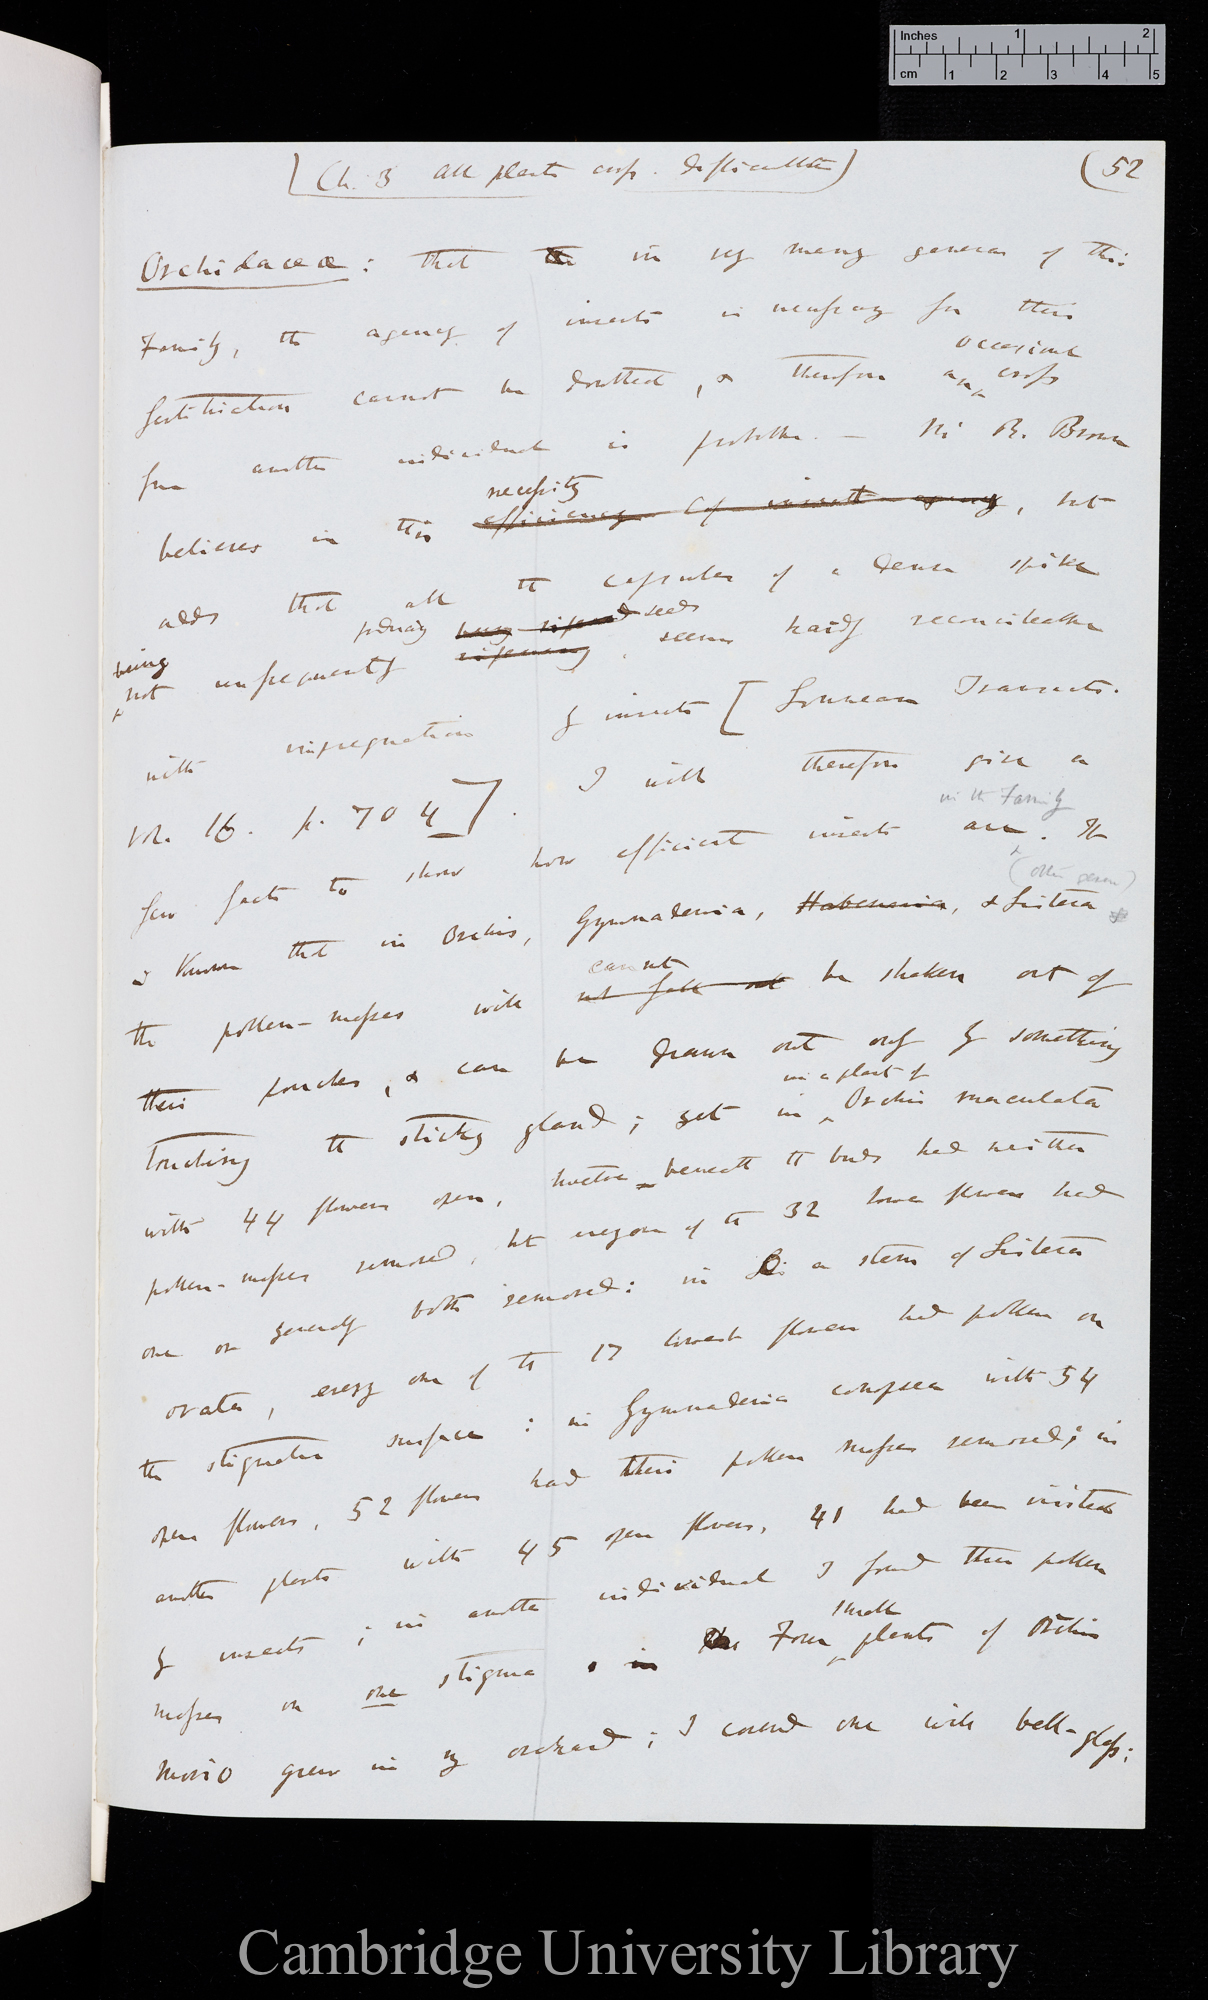 Inches 1 2
cm 1 2 3 4 5
(Ch. 3 All plants cross. difficulties)
(52
Orchidaceæ: that in very many genera of this
Family, the agency of insects is necessary for their
occasional
fertilisation cannot be doubted, & therefore an cross
from another individual is probable. — Mr R. Brown
necessity
believes in this efficiency of insect agency, but
adds that all the capsules of a dense spike
producing seeds
being
not unfrequently ripening, seems hardly reconcileable
with impregnation by insects [Linnean Transacts.
vol. 16. p. 704]. I will therefore give a
in the Family
few facts to show how efficient insects are. It
(other genera)
is known that in Orchis, Gymnadenia, Habenaria, & Listera
cannot
the pollen-masses will not fall out be shaken out of
their pouches, & can be drawn out only by something
in a plant of
touching the sticky gland; yet in Orchis maculata
with 44 flowers open, twelve beneath the buds had neither
pollen-masses removed, but every one of the 32 lower flowers had
one or generally both removed: in a stem of Listera
ovata, every one of the 17 lowest flowers had pollen on
the stigmatic surface: in Gymnadenia conopsea with 54
open flowers, 52 flowers had their pollen masses removed; in
another plants with 45 open flowers, 41 had been visited
by insects; in another individual I found three pollen
small
masses on one stigma in Four plants of Orchis
morio grew in my orchard; I covered one with bell-glass;
Cambridge University Library